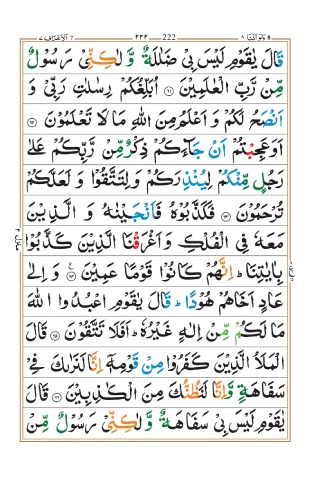 ٧ الاعراف ٧ ٢٢٢ 222 ولواننا ٨
قَالَ يٰقَوْمِ لَيْسَ بِىْ ضَلٰلَةٌ وَّ لٰكِنِّىْ رَسُوْلٌ
مِّنْ رَّبِّ الْعٰلَمِيْنَ ﴿٦١﴾ اُبَلِّغُكُمْ رِسٰلٰتِ رَبِّىْ وَ
اَنْصَحُ لَكُمْ وَ اَعْلَمُ مِنَ اللهِ مَا لَا تَعْلَمُوْنَ ﴿٦٢﴾
اَوَعَجِبْتُمْ اَنْ جَآءَكُمْ ذِكْرٌ مِّنْ رَّبِّكُمْ عَلٰى
رَجُلٍ مِّنْكُمْ لِيُنْذِرَكُمْ وَلِتَتَّقُوْا وَ لَعَلَّكُمْ
تُرْحَمُوْنَ ﴿٦٣﴾ فَكَذَّبُوْهُ فَاَنْجَيْنٰهُ وَ الَّذِيْنَ
مَعَهٗ فِى الْفُلْكِ وَ اَغْرَقْنَا الَّذِيْنَ كَذَّبُوْا
بِاٰيٰتِنَا ؕ اِنَّهُمْ كَانُوْا قَوْمًا عَمِيْنَ ﴿٦٤﴾ وَ اِلٰى
عَادٍ اَخَاهُمْ هُوْدًا ؕ قَالَ يٰقَوْمِ اعْبُدُوا اللهَ
مَا لَكُمْ مِّنْ اِلٰهٍ غَيْرُهٗ ؕ اَفَلَا تَتَّقُوْنَ ﴿٦٥﴾ قَالَ
الْمَلَاُ الَّذِيْنَ كَفَرُوْا مِنْ قَوْمِهٖۤ اِنَّا لَنَرٰىكَ فِىْ
سَفَاهَةٍ وَّاِنَّا لَنَظُنُّكَ مِنَ الْكٰذِبِيْنَ ﴿٦٦﴾ قَالَ
يٰقَوْمِ لَيْسَ بِىْ سَفَاهَةٌ وَّ لٰكِنِّىْ رَسُوْلٌ مِّنْ